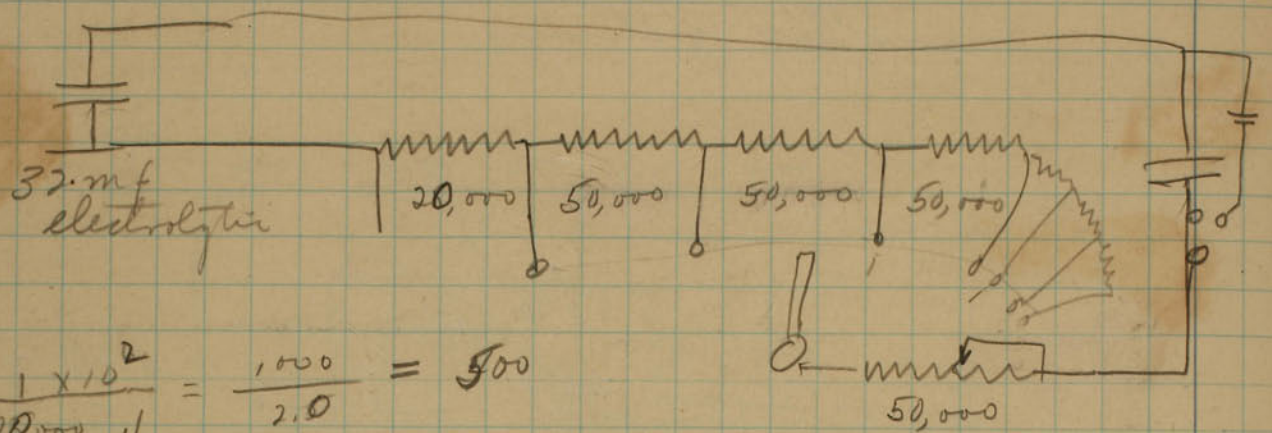 32.mf
electrolytic
20,000 50,000 50,000 50,000
50,000
1 x 10² = 1000 = 500
2.0